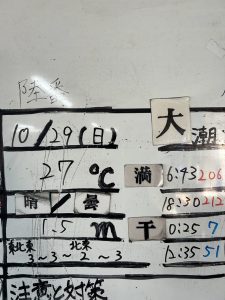 10/29(日) 大潮
27℃ 満 6:43 206
晴/曇 18:30 212
1.5m 干 0:25 7
東北東 北東 12:35 51
3~3~2~3
注意と対策